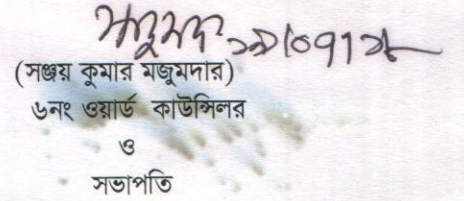 (সঞ্জয় কুমার মজুমদার)
৬নং ওয়ার্ড কাউন্সিলর
ও
সভাপতি